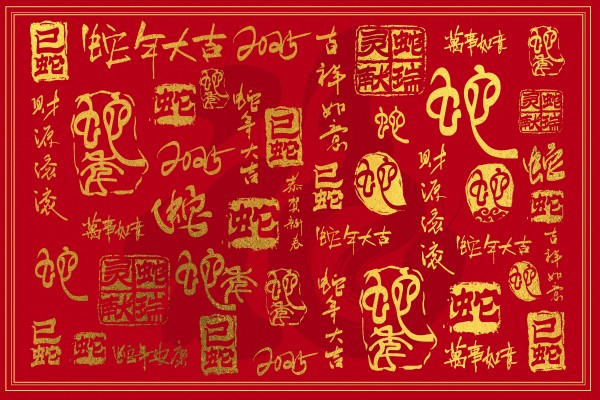 巳蛇
蛇年大吉
2025
吉祥如意
灵蛇献瑞
萬事如意
蛇年
财源滚滚
蛇年
蛇
蛇年
蛇年大吉
巳蛇
蛇
蛇
灵蛇献瑞
2025
恭贺新春
巳蛇
蛇
财源滚滚
蛇
蛇
蛇
萬事如意
蛇
蛇
蛇年大吉
蛇年大吉
吉祥如意
蛇
灵蛇献瑞
蛇年
蛇年
蛇年大吉
蛇年
蛇
蛇
巳蛇
蛇
蛇年安康
巳蛇
2025
萬事如意
巳蛇